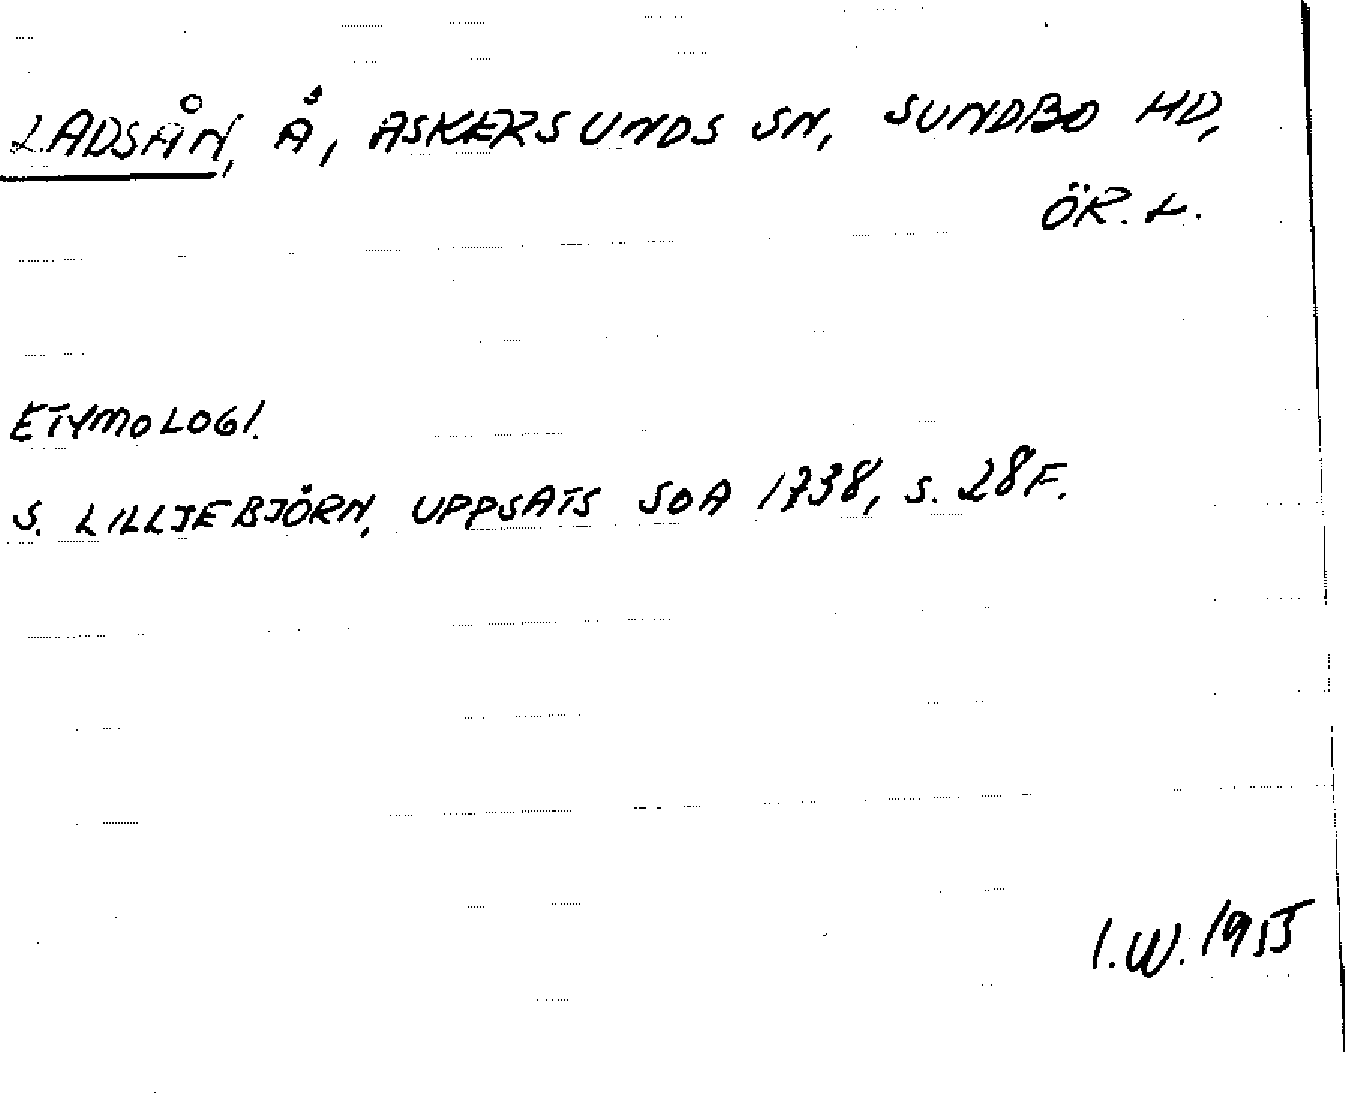 LADSÅN, Å, ASKERSUNDS SN, SUNDBO HD,
ÖR. L.
ETYMOLOGI.
S. LILLJEBJÖRN, UPPSATS SOA 1738, S. 28 F.
I.W. 1955